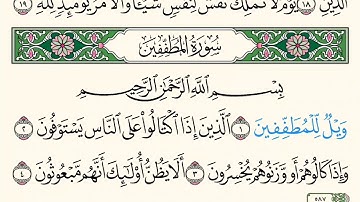 ٱلدِّينِ ١٨ يَوْمَ لَا تَمْلِكُ نَفْسٌ لِّنَفْسٍ شَيْـًٔا وَٱلْأَمْرُ يَوْمَئِذٍ لِّلَّهِ ١٩
سُورَةُ المُطَفِّفِينَ
بِسْمِ ٱللَّهِ ٱلرَّحْمَٰنِ ٱلرَّحِيمِ
وَيْلٌ لِّلْمُطَفِّفِينَ ١ ٱلَّذِينَ إِذَا ٱكْتَالُوا۟ عَلَى ٱلنَّاسِ يَسْتَوْفُونَ ٢
وَإِذَا كَالُوهُمْ أَو وَّزَنُوهُمْ يُخْسِرُونَ ٣ أَلَا يَظُنُّ أُو۟لَٰٓئِكَ أَنَّهُم مَّبْعُوثُونَ ٤
٥٨٧